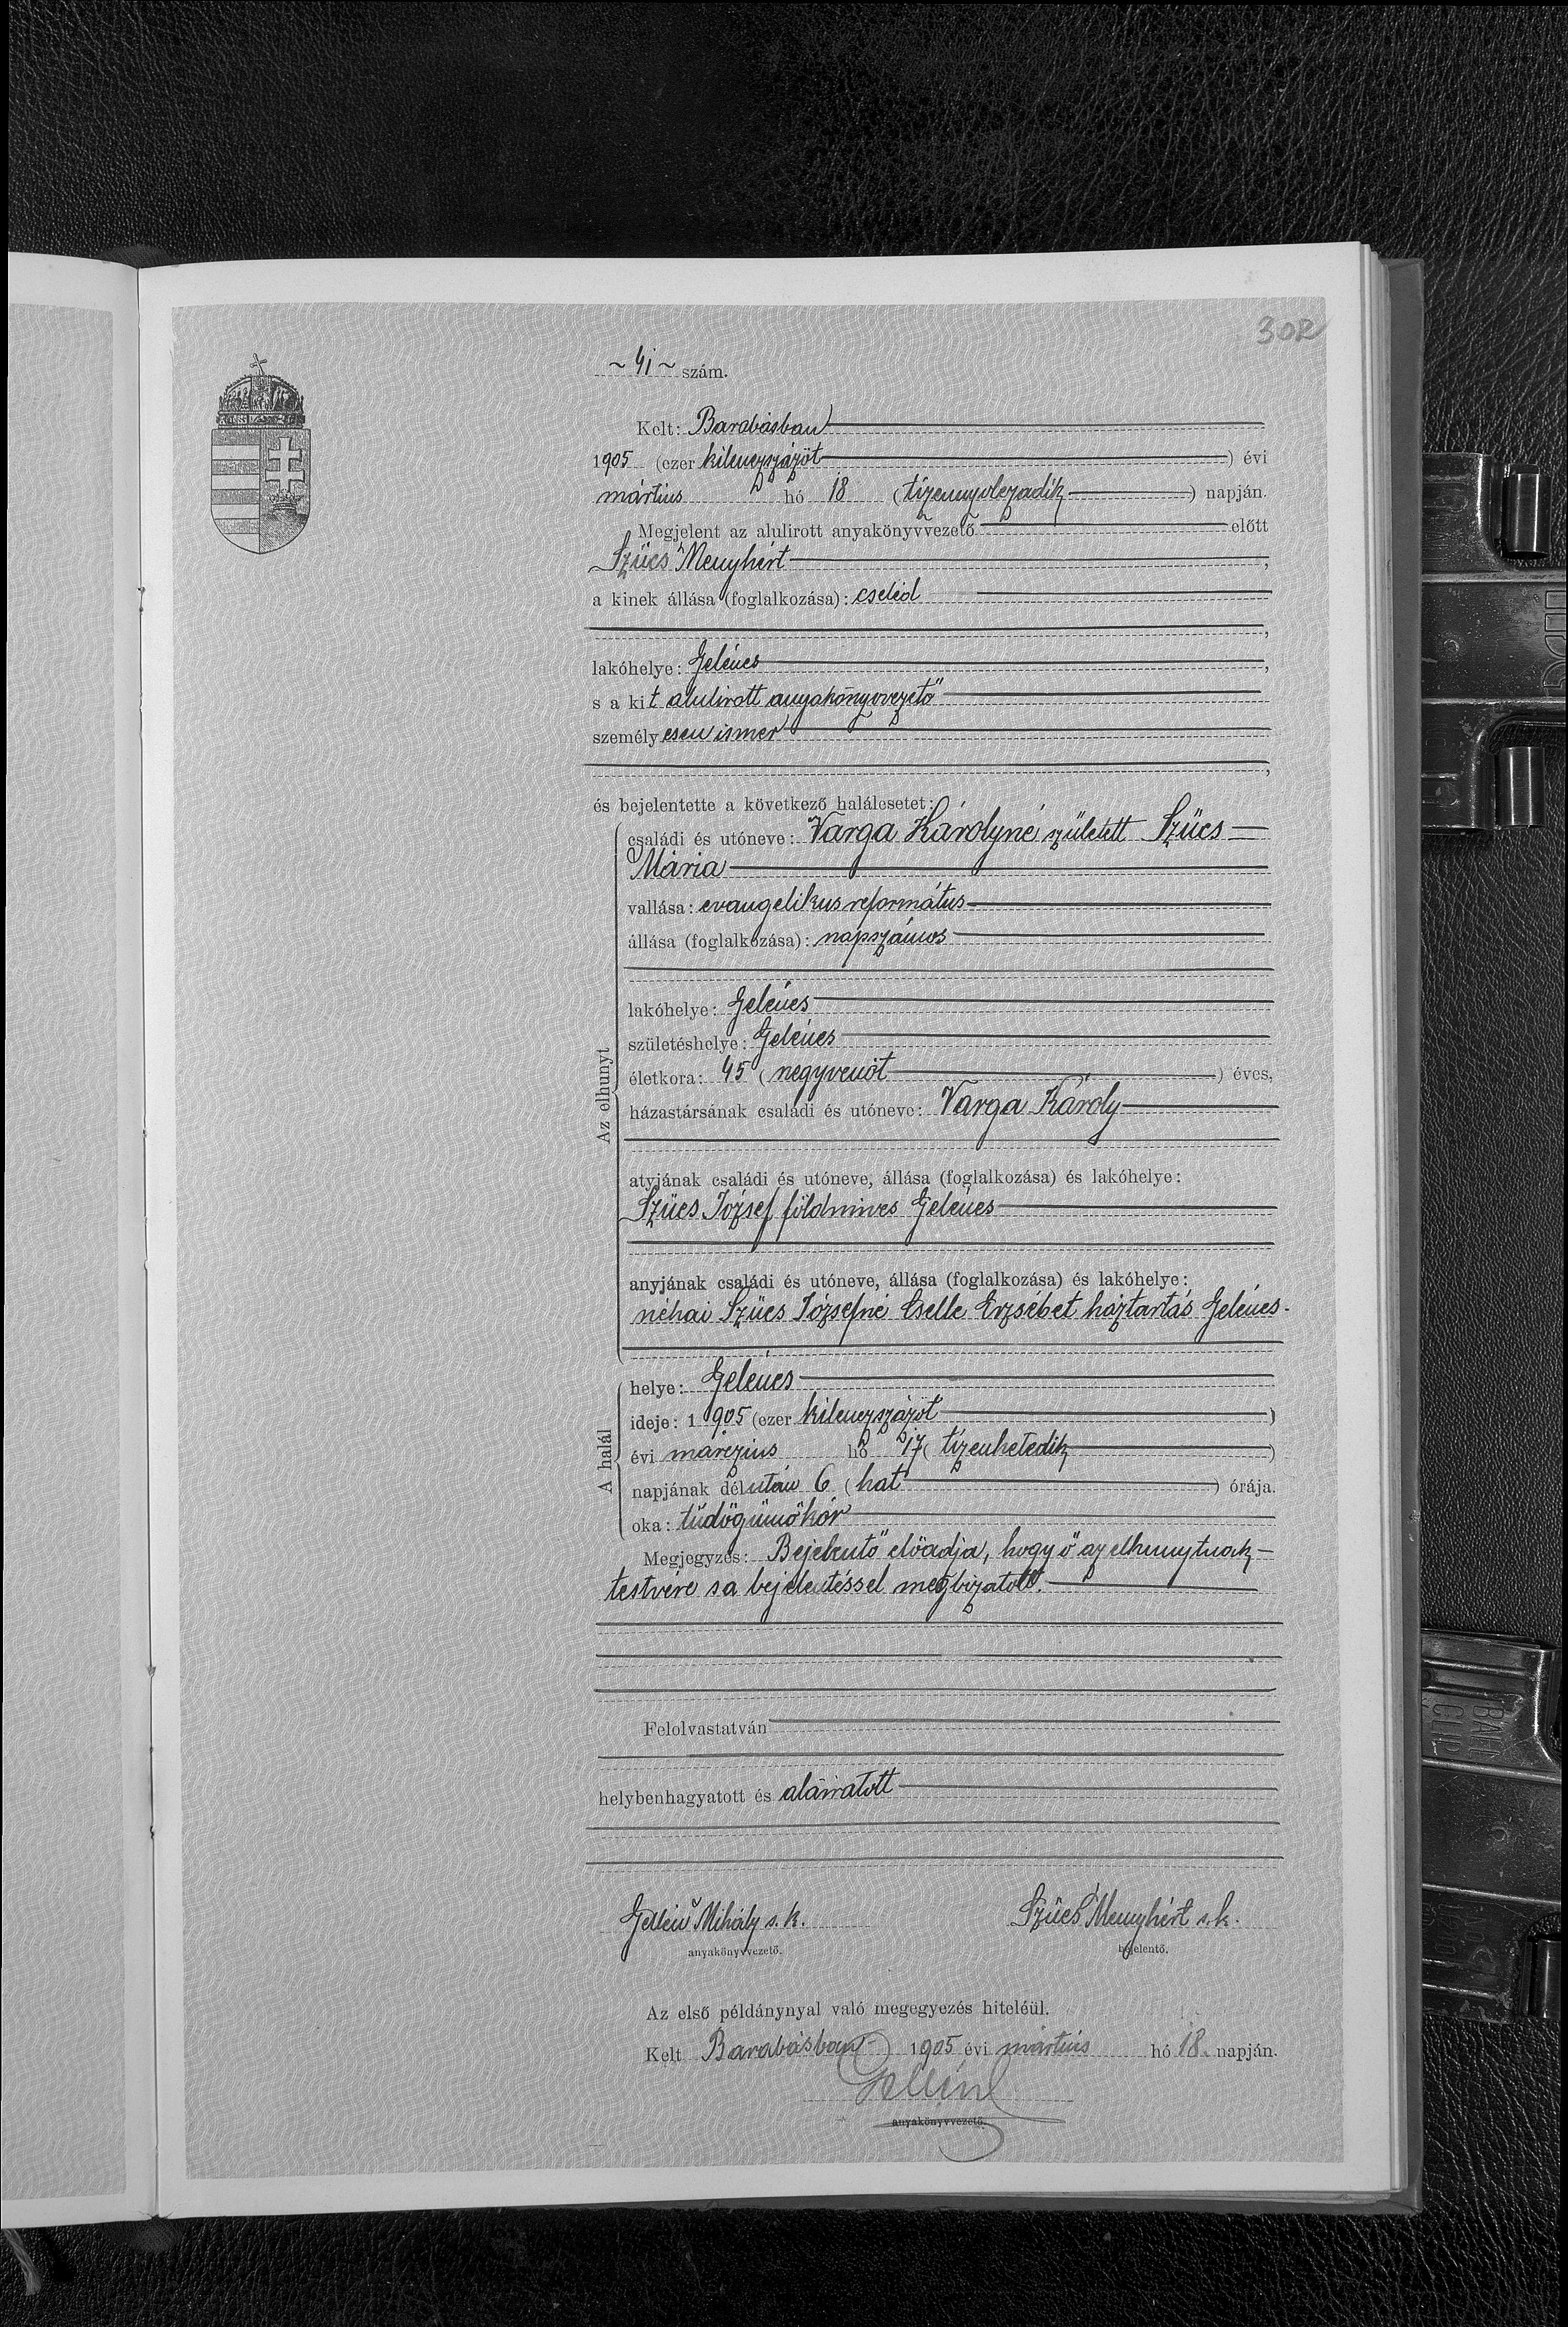 302
~ 41 ~ szám.
Kelt: Barabásban
1905 (ezer kilenczszázöt ) évi
mártius hó 18 (tizennyolczadik ) napján.
Megjelent az alulirott anyakönyvvezető előtt
Szücs Menyhért ,
a kinek állása (foglalkozása): cseléd
,
lakóhelye: Gelénes ,
s a kit alulirott anyakönyvvezető
személyesen ismer
,
és bejelentette a következő halálesetet:
Az elhunyt
családi és utóneve: Varga Károlyné született Szücs
Mária
vallása: evangelikus református
állása (foglalkozása): napszámos
lakóhelye: Gelénes
születéshelye: Gelénes
életkora: 45 (negyvenöt ) éves,
házastársának családi és utóneve: Varga Károly
atyjának családi és utóneve, állása (foglalkozása) és lakóhelye:
Szücs József földmives Gelénes
anyjának családi és utóneve, állása (foglalkozása) és lakóhelye:
néhai Szücs Józsefné Cselle Erzsébet háztartás Gelénes.
A halál
helye: Gelénes
ideje: 1905 (ezer kilenczszázöt )
évi márczius hó 17 (tizenhetedik )
napjának délután 6 (hat ) órája.
oka: tüdőgümőkór
Megjegyzés: Bejelentő előadja, hogy ő az elhunytnak
testvére s a bejelentéssel megbizatott.
Felolvastatván
helybenhagyatott és aláiratott
Gellén Mihály s. k. Szücs Menyhért s. k.
anyakönyvvezető. bejelentő.
Az első példánynyal való megegyezés hiteléül.
Kelt Barabásban 1905 évi mártius hó 18. napján.
Gellén
anyakönyvvezető.